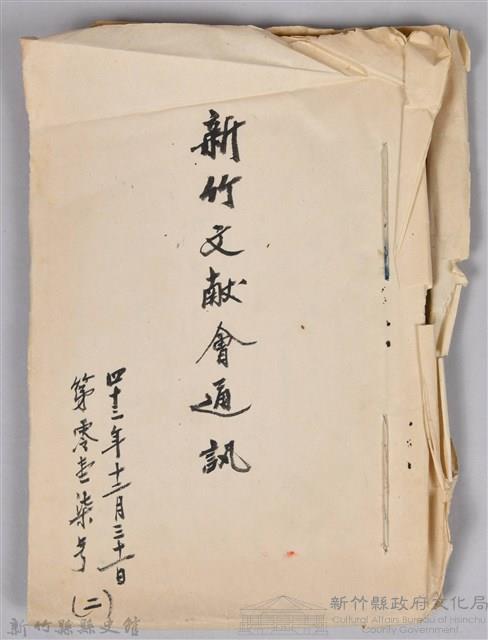 新竹文献會通訊
四十三年十二月三十一日
第零壹柒号(二)
新竹縣縣史館
新竹縣政府文化局
Cultural Affairs Bureau of Hsinchu
County Government